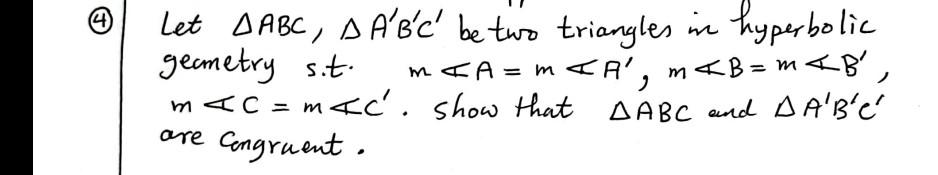 ④ Let ΔABC, ΔA'B'C' be two triangles in hyperbolic
geometry s.t. m∢A = m∢A', m∢B = m∢B',
m∢C = m∢C'. show that ΔABC and ΔA'B'C'
are Congruent.